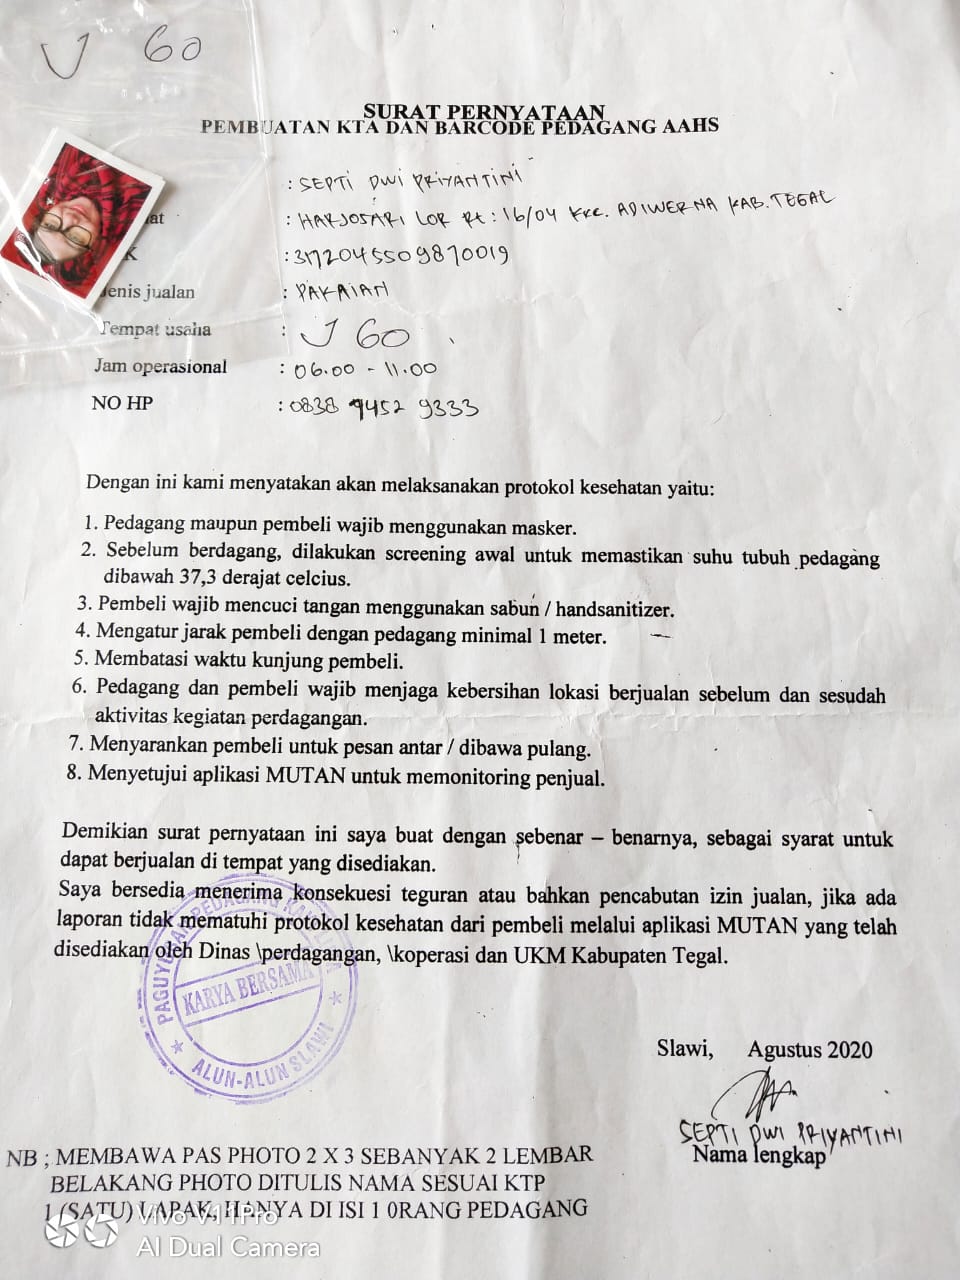 J 60
SURAT PERNYATAAN
PEMBUATAN KTA DAN BARCODE PEDAGANG AAHS
: SEPTI DWI PRIYANTINI
at : HARJOSARI LOR Rt : 16/04 Kec. ADIWERNA KAB. TEGAL
K : 3172045509870019
Jenis jualan : PAKAIAN
Tempat usaha : J 60
Jam operasional : 06.00 - 11.00
NO HP : 0838 9452 9333
Dengan ini kami menyatakan akan melaksanakan protokol kesehatan yaitu:
1. Pedagang maupun pembeli wajib menggunakan masker.
2. Sebelum berdagang, dilakukan screening awal untuk memastikan suhu tubuh pedagang
dibawah 37,3 derajat celcius.
3. Pembeli wajib mencuci tangan menggunakan sabun / handsanitizer.
4. Mengatur jarak pembeli dengan pedagang minimal 1 meter.
5. Membatasi waktu kunjung pembeli.
6. Pedagang dan pembeli wajib menjaga kebersihan lokasi berjualan sebelum dan sesudah
aktivitas kegiatan perdagangan.
7. Menyarankan pembeli untuk pesan antar / dibawa pulang.
8. Menyetujui aplikasi MUTAN untuk memonitoring penjual.
Demikian surat pernyataan ini saya buat dengan sebenar – benarnya, sebagai syarat untuk
dapat berjualan di tempat yang disediakan.
Saya bersedia menerima konsekuesi teguran atau bahkan pencabutan izin jualan, jika ada
laporan tidak mematuhi protokol kesehatan dari pembeli melalui aplikasi MUTAN yang telah
disediakan oleh Dinas \perdagangan, \koperasi dan UKM Kabupaten Tegal.
PAGUYUBAN PEDAGANG KAKI LIMA
KARYA BERSAMA
ALUN-ALUN SLAWI
Slawi, Agustus 2020
SEPTI DWI PRIYANTINI
Nama lengkap
NB ; MEMBAWA PAS PHOTO 2 X 3 SEBANYAK 2 LEMBAR
BELAKANG PHOTO DITULIS NAMA SESUAI KTP
1 (SATU) LAPAK, HANYA DI ISI 1 0RANG PEDAGANG
Vivo V11Pro
AI Dual Camera